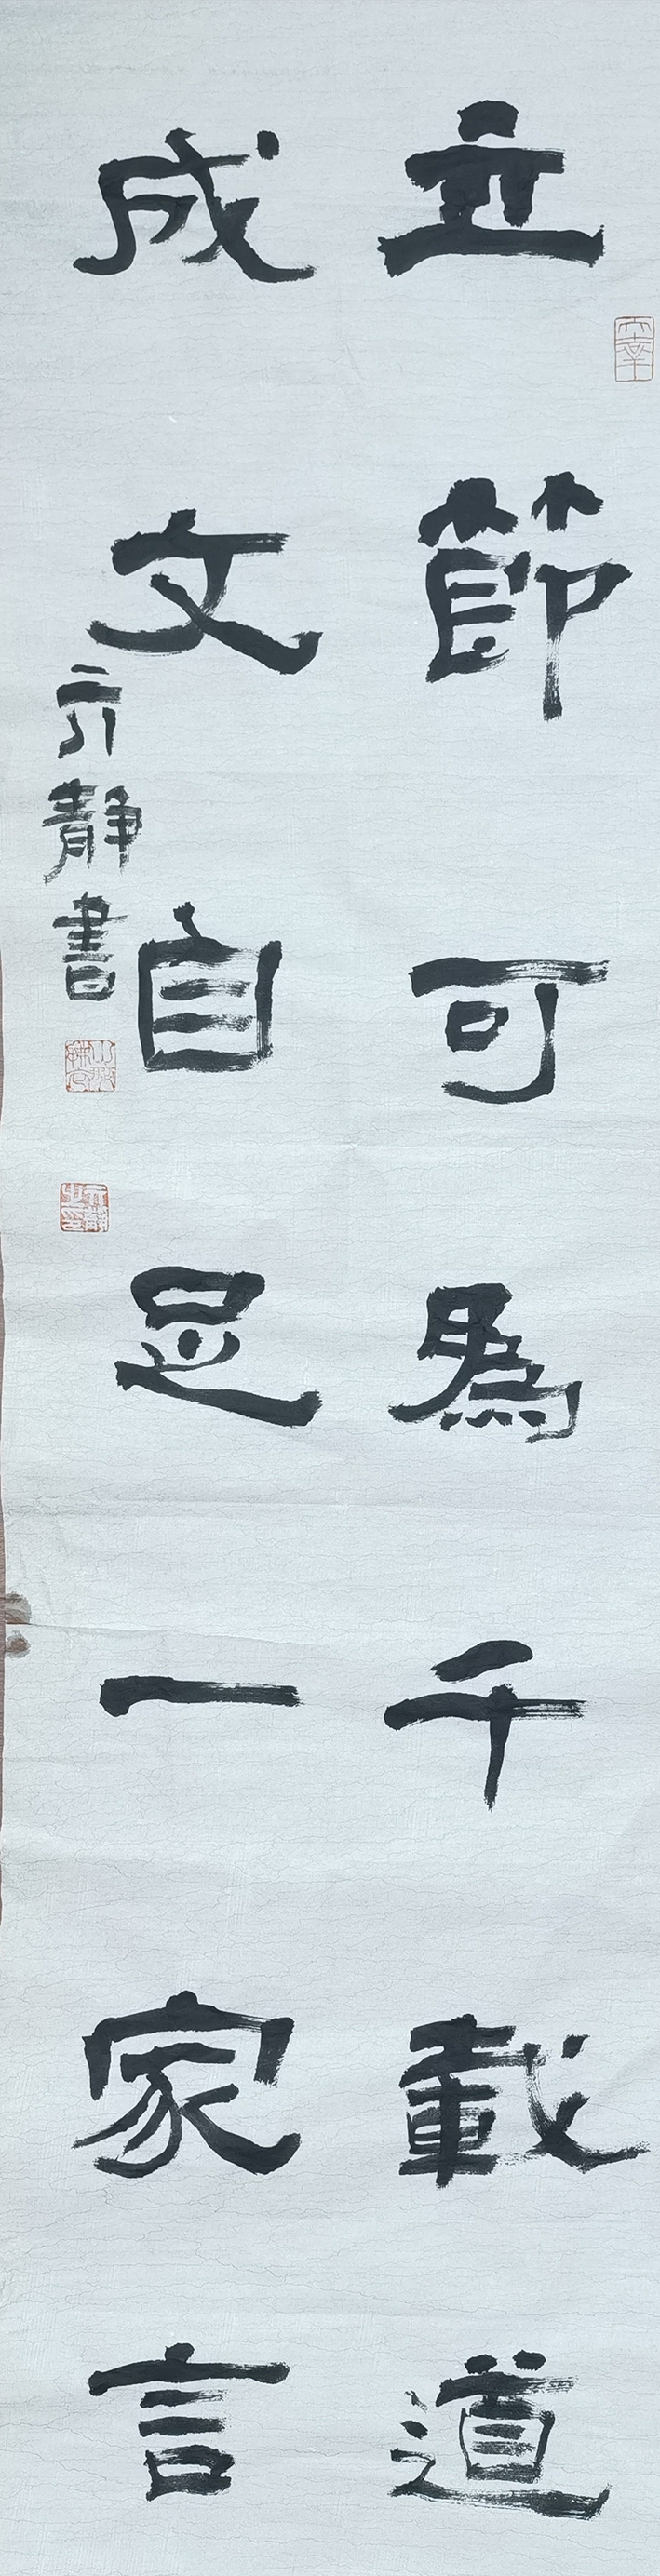 立節可為千載道
成文自足一家言
亓靜書